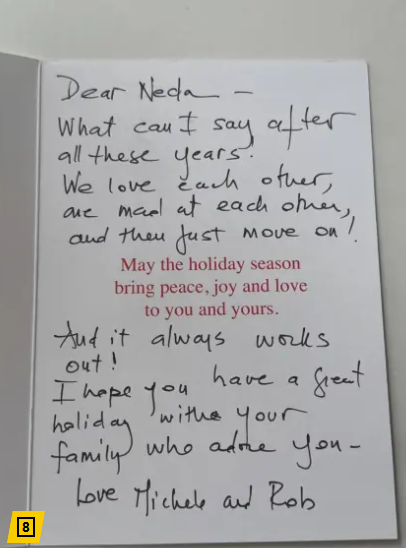 Dear Neda -
What can I say after
all these years.
We love each other,
are mad at each other,
and then just move on!
May the holiday season
bring peace, joy and love
to you and yours.
And it always works
out!
I hope you have a great
holiday withe your
family who adore you -
Love Michele and Rob
8